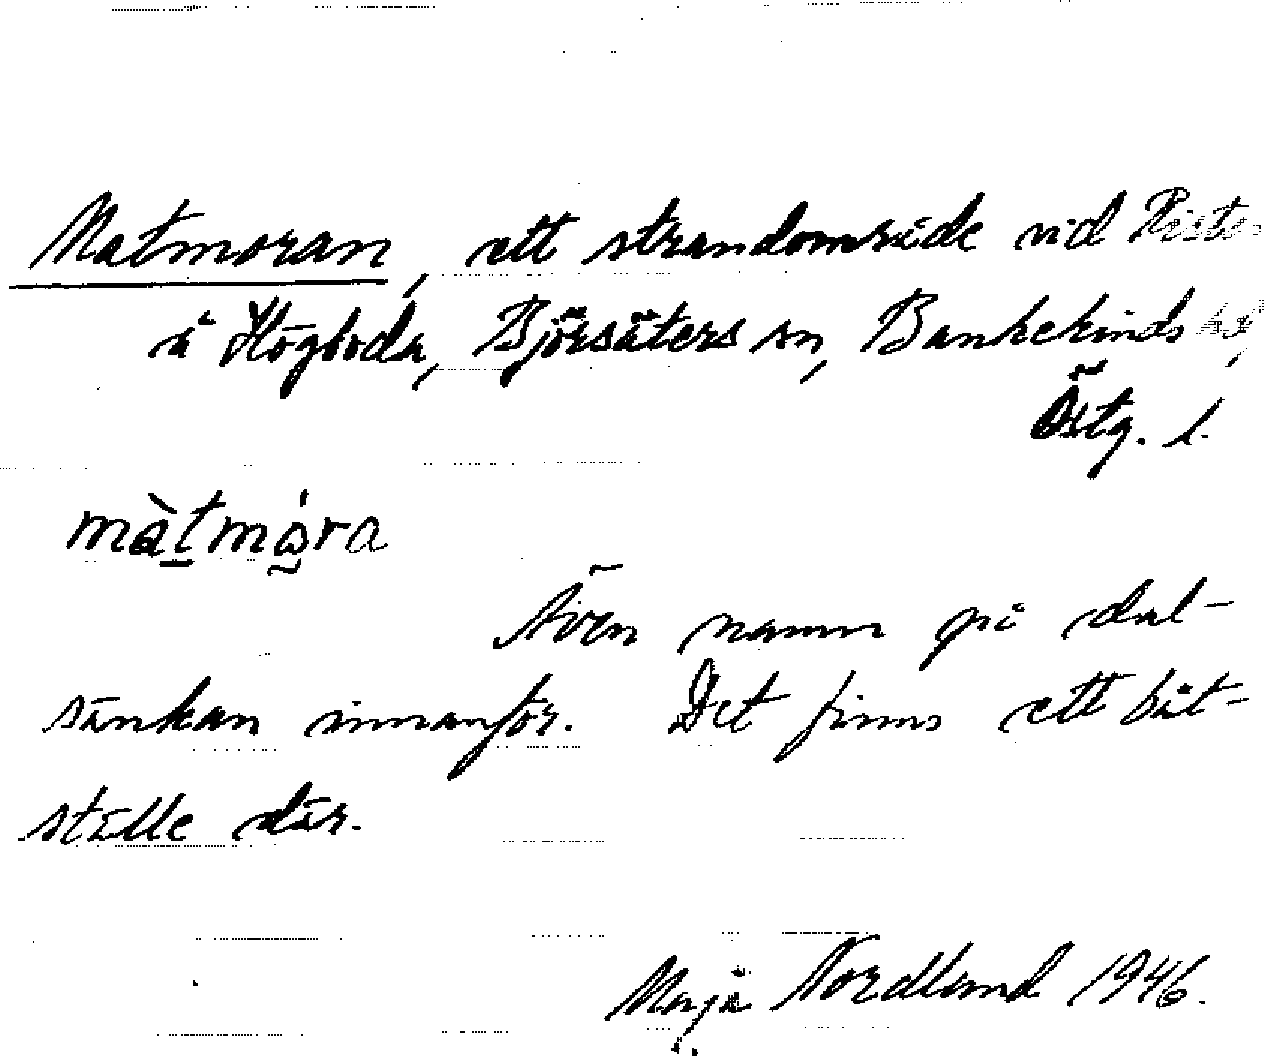 Matmoran, ett strandområde vid Risten
å Högboda, Björsäters sn, Bankekinds hd,
Östg. l.
màt̲mɷ́ra
Även namn på dal-
sänkan innanför. Det finns ett båt-
ställe där.
Maja Nordlund 1946.